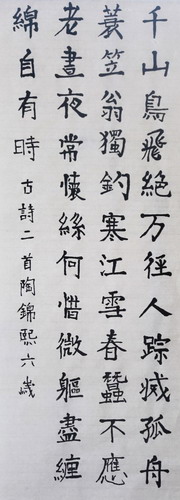 千山鳥飛絶万徑人踪滅孤舟
蓑笠翁獨釣寒江雪春蠶不應
老晝夜常懷絲何惜微軀盡纏
綿自有時
古詩二首陶錦熙六歲